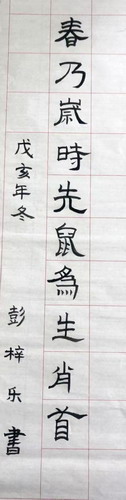 春乃嵗時先鼠為生肖首
戊亥年冬
彭梓乐書